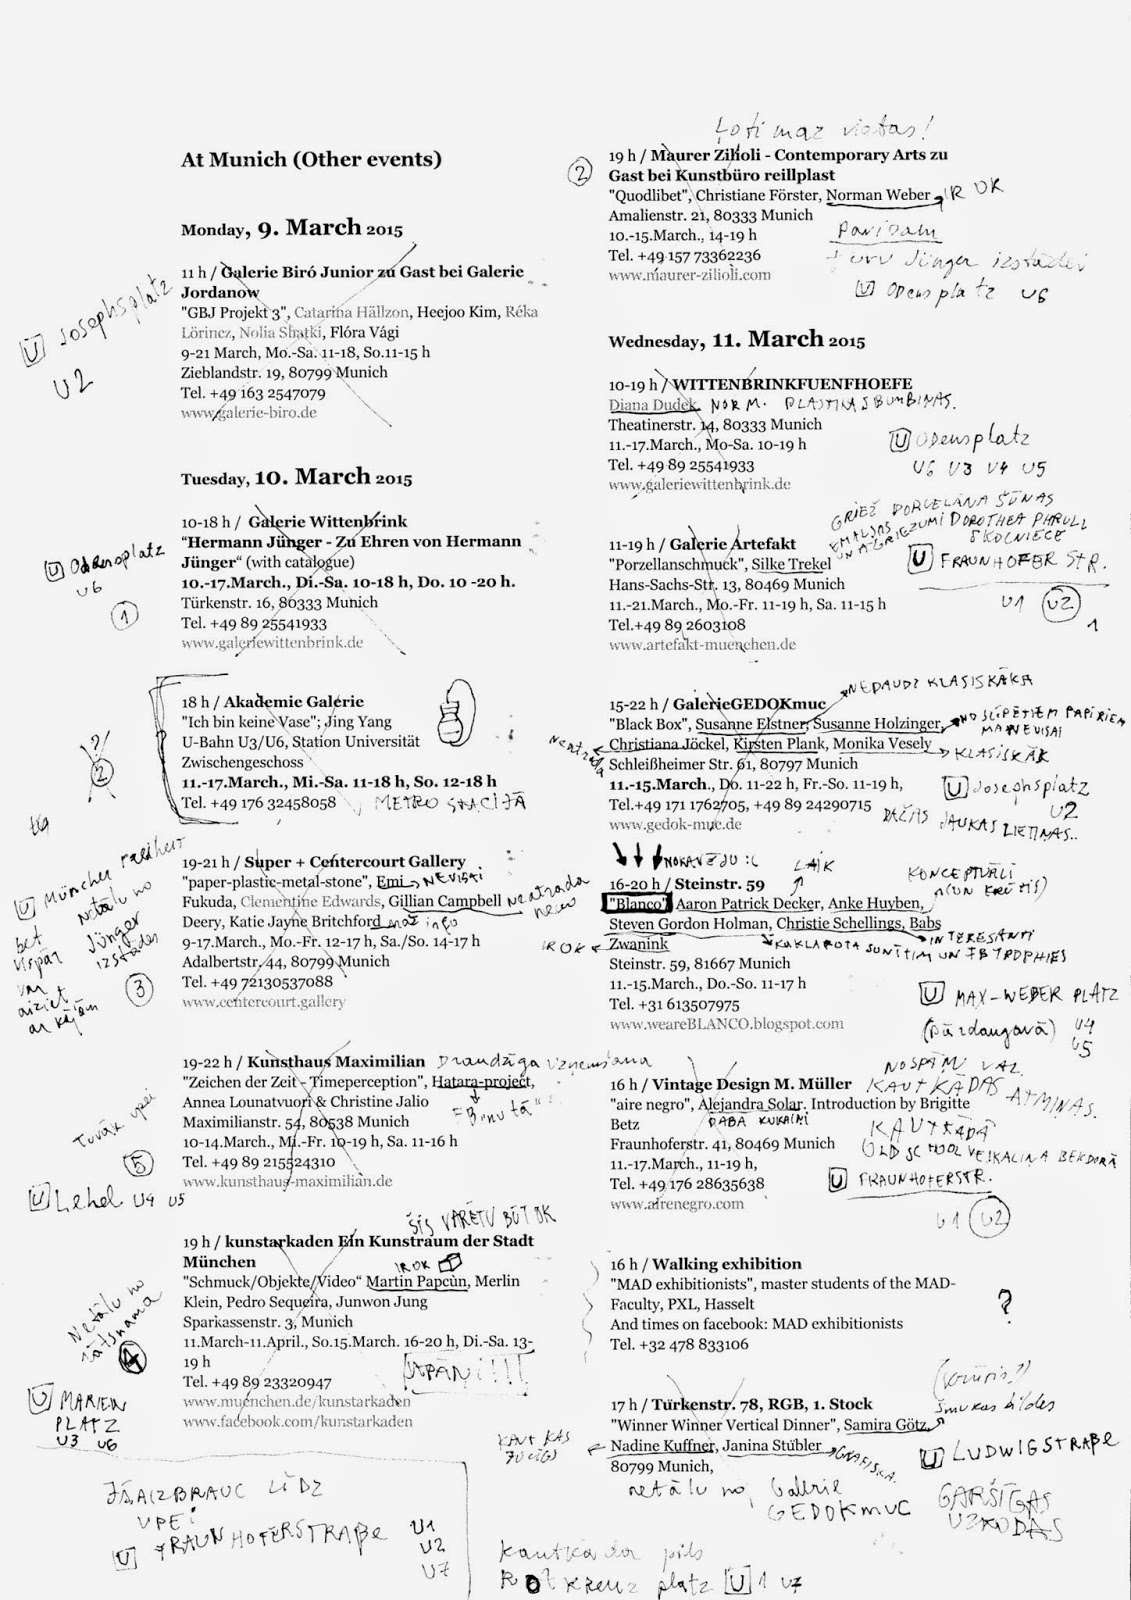 At Munich (Other events)
Monday, 9. March 2015
11 h / Galerie Biró Junior zu Gast bei Galerie
Jordanow
"GBJ Projekt 3", Catarina Hällzon, Heejoo Kim, Réka
Lörincz, Nolia Shatki, Flóra Vági
9-21 March, Mo.-Sa. 11-18, So.11-15 h
Zieblandstr. 19, 80799 Munich
Tel. +49 163 2547079
www.galerie-biro.de
U Josephsplatz
U2
Tuesday, 10. March 2015
10-18 h / Galerie Wittenbrink
"Hermann Jünger - Zu Ehren von Hermann
Jünger“ (with catalogue)
10.-17.March., Di.-Sa. 10-18 h, Do. 10 -20 h.
Türkenstr. 16, 80333 Munich
Tel. +49 89 25541933
www.galeriewittenbrink.de
U Odeensplatz
U6
1
18 h / Akademie Galerie
"Ich bin keine Vase"; Jing Yang
U-Bahn U3/U6, Station Universität
Zwischengeschoss
11.-17.March., Mi.-Sa. 11-18 h, So. 12-18 h
Tel. +49 176 32458058
METRO STACIJĀ
?
2
19-21 h / Super + Centercourt Gallery
"paper-plastic-metal-stone", Emi NEVISAI
Fukuda, Clementine Edwards, Gillian Campbell neatrada
neko
Deery, Katie Jayne Britchford maz info
9-17.March., Mo.-Fr. 12-17 h, Sa./So. 14-17 h
Adalbertstr. 44, 80799 Munich
Tel. +49 72130537088
www.centercourt.gallery
U München Freiheit
netālu no
Jünger
izstādes
bet
vispār
var
aiziet
ar kājām
3
19-22 h / Kunsthaus Maximilian Draudzīga uzņemšana
"Zeichen der Zeit - Timeperception", Hatara-project,
Annea Lounatvuori & Christine Jalio
Maximilianstr. 54, 80538 Munich
10-14.March., Mi.-Fr. 10-19 h, Sa. 11-16 h
Tel. +49 89 215524310
www.kunsthaus-maximilian.de
Tuvāk upei
5
U Lehel U4 U5
ŠIS VARĒTU BŪT OK
19 h / kunstarkaden Ein Kunstraum der Stadt
München
IR OK
"Schmuck/Objekte/Video“ Martin Papcùn, Merlin
Klein, Pedro Sequeira, Junwon Jung
Sparkassenstr. 3, Munich
11.March-11.April., So.15.March. 16-20 h, Di.-Sa. 13-
19 h
Tel. +49 89 23320947
www.muenchen.de/kunstarkaden
www.facebook.com/kunstarkaden
Netālu no
rātsnama
4
U MARIEN
PLATZ
U3 U6
JĀAIZBRAUC LĪDZ
UPEI
U FRAUNHOFERSTRAßE U1
U2
U7
Ļoti maz vietas!
2
19 h / Maurer Zilioli - Contemporary Arts zu
Gast bei Kunstbüro reillplast
"Quodlibet", Christiane Förster, Norman Weber IR OK
Amalienstr. 21, 80333 Munich
10.-15.March., 14-19 h
Tel. +49 157 73362236
www.maurer-zilioli.com
Pavisam
tuvu Jünger izstādei
U Odensplatz U6
Wednesday, 11. March 2015
10-19 h / WITTENBRINKFUENFHOEFE
Diana Dudek NORM. PLASTMASBUMBIŅAS.
Theatinerstr. 14, 80333 Munich
11.-17.March., Mo-Sa. 10-19 h
Tel. +49 89 25541933
www.galeriewittenbrink.de
U Odensplatz
U6 U3 U4 U5
GRIEŽ PORCELĀNA ŠŪNAS
DOROTHEA PRÜHL
SKOLNIECE
11-19 h / Galerie Artefakt
"Porzellanschmuck", Silke Trekel
Hans-Sachs-Str. 13, 80469 Munich
11.-21.March., Mo.-Fr. 11-19 h, Sa. 11-15 h
Tel.+49 89 2603108
www.artefakt-muenchen.de
U FRAUNHOFER STR.
U1 U2
1
NEDAUDZ KLASISKĀKA
15-22 h / GalerieGEDOKmuc
"Black Box", Susanne Elstner, Susanne Holzinger, NO SLĪPĒTIEM PAPĪRIEM
MAN NEVISAI
Christiana Jöckel, Kirsten Plank, Monika Vesely KLASISKĀK
neatrada
Schleißheimer Str. 61, 80797 Munich
11.-15.March., Do. 11-22 h, Fr.-So. 11-19 h,
Tel.+49 171 1762705, +49 89 24290715
www.gedok-muc.de
U Josephsplatz
U2
DAŽAS JAUKAS LIETIŅAS..
NOKAVĒJU :( LAIK
16-20 h / Steinstr. 59
"Blanco" Aaron Patrick Decker, Anke Huyben,
Steven Gordon Holman, Christie Schellings, Babs
Zwanink
IR OK
KONCEPTUĀLI
(UN KRŪTIS)
INTERESANTI
KAKLAROTA SUNĪTIM UN TROPHIES
Steinstr. 59, 81667 Munich
11.-15.March., Do.-So. 11-17 h
Tel. +31 613507975
www.weareBLANCO.blogspot.com
U MAX-WEBER PLATZ
(Pārdaugavā) U4
U5
NOSPĀM VAL
KAUTKĀDAS ATMIŅAS.
16 h / Vintage Design M. Müller
"aire negro", Alejandra Solar. Introduction by Brigitte
Betz
DABA KUKAIŅI
Fraunhoferstr. 41, 80469 Munich
11.-17.March., 11-19 h,
Tel. +49 176 28635638
www.airenegro.com
KAUTKĀDĀ
OLD SCHOOL VEIKALIŅA BEKDORĀ
U FRAUNHOFERSTR.
U1 U2
16 h / Walking exhibition
"MAD exhibitionists", master students of the MAD-
Faculty, PXL, Hasselt
And times on facebook: MAD exhibitionists
Tel. +32 478 833106
?
17 h / Türkenstr. 78, RGB, 1. Stock
"Winner Winner Vertical Dinner", Samira Götz,
Nadine Kuffner, Janina Stübler GRAFISKA.
80799 Munich,
KAUT KAS
šmukas bildes
U LUDWIGSTRAßE
netālu no Galerie
GEDOKMUC
GARŠĪGAS
UZKODAS
Kautkāda pils
Rotkreuz platz U 1 U7